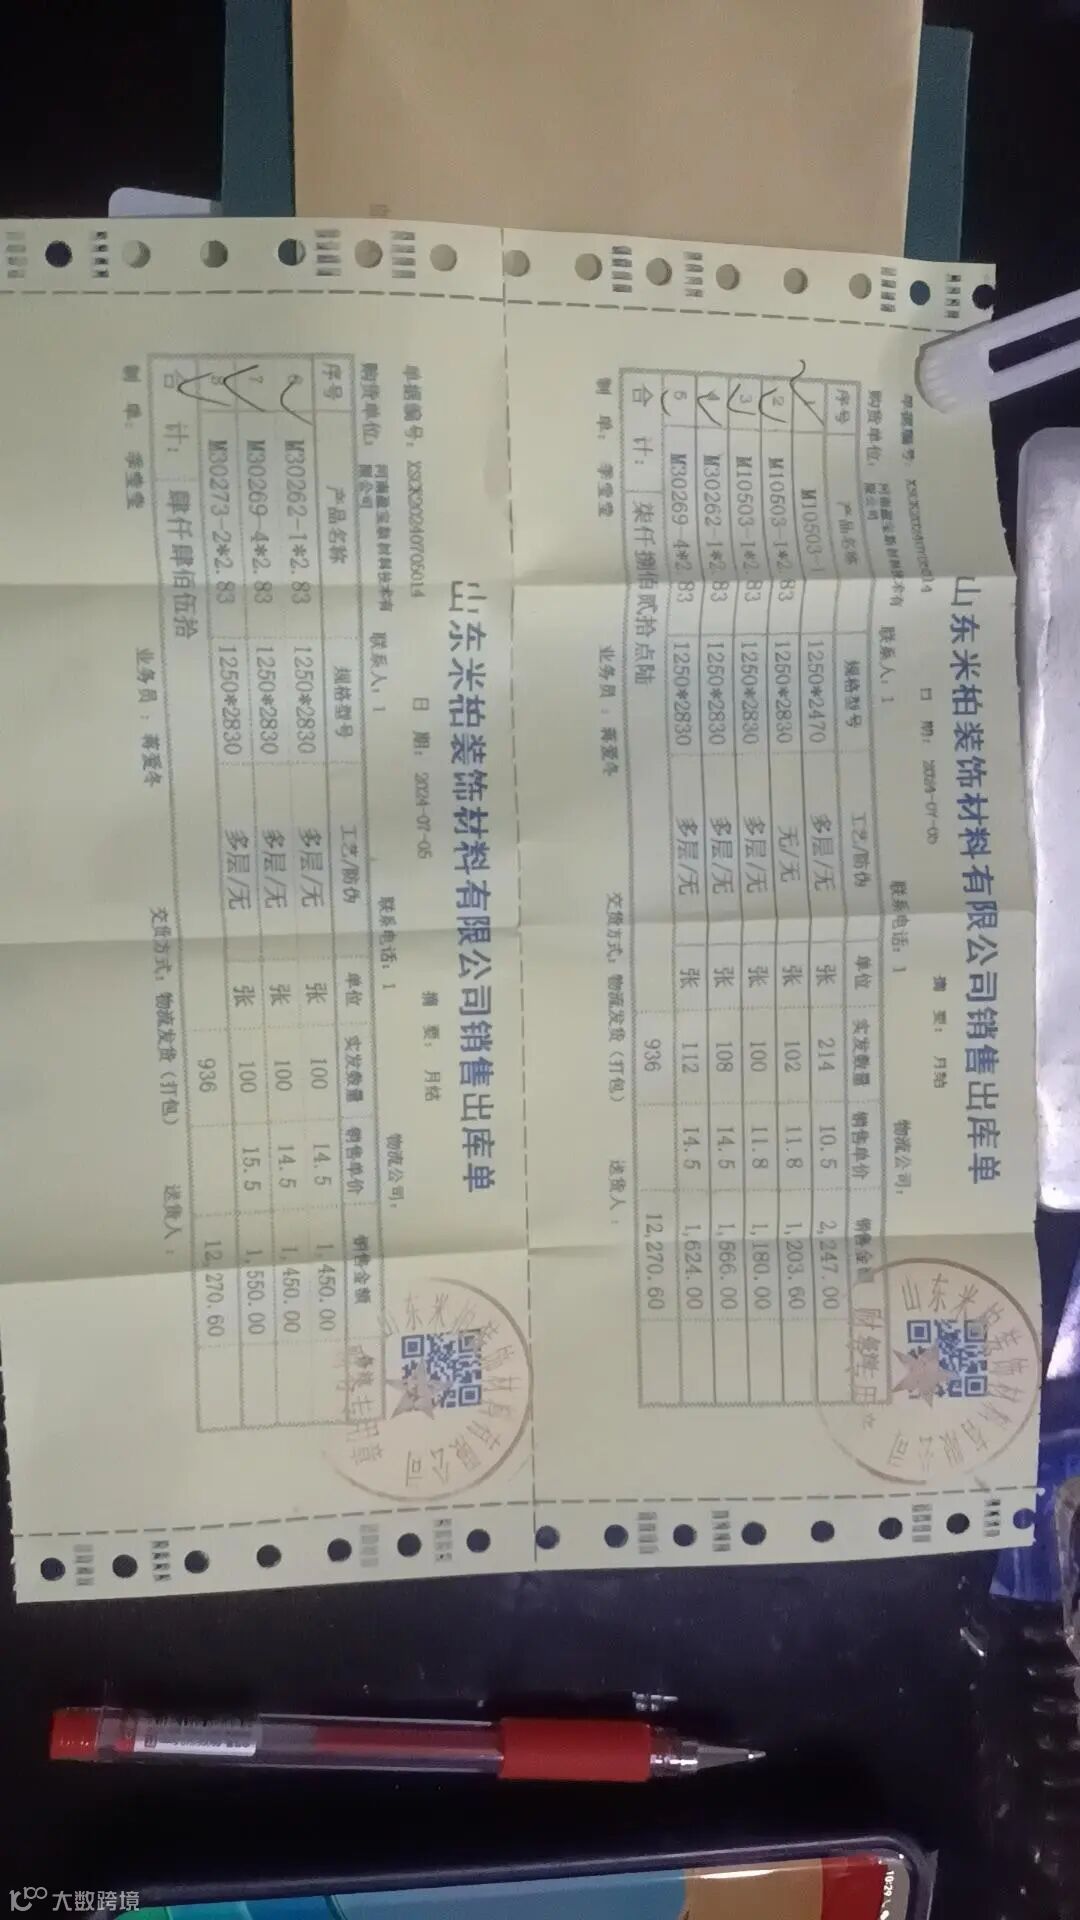 山东米柏装饰材料有限公司销售出库单
单据编号: 日 期: 2024-07-05 摘 要: 月结
购货单位: 河南盈宝新材料技术有限公司 联系人: 1 联系电话: 1 物流公司:
序号 产品名称 规格型号 工艺/防伪 单位 实发数量 销售单价 销售金额
1 M10503-1 1250*2470 多层/无 张 214 10.5 2,247.00
2 M10503-1*2.83 1250*2830 无/无 张 102 11.8 1,203.60
3 M10503-1*2.83 1250*2830 多层/无 张 100 11.8 1,180.00
4 M30262-1*2.83 1250*2830 多层/无 张 108 14.5 1,566.00
5 M30269-4*2.83 1250*2830 多层/无 张 112 14.5 1,624.00
合 计: 柒仟捌佰贰拾点陆 936 12,270.60
制 单: 李莹莹 业务员: 蒋爱冬 交货方式: 物流发货(打包) 送货人:
山东米柏装饰材料有限公司销售出库单
单据编号: XSCK20240705014 日 期: 2024-07-05 摘 要: 月结
购货单位: 河南盈宝新材料技术有限公司 联系人: 1 联系电话: 1 物流公司:
序号 产品名称 规格型号 工艺/防伪 单位 实发数量 销售单价 销售金额
6 M30262-1*2.83 1250*2830 多层/无 张 100 14.5 1,450.00
7 M30269-4*2.83 1250*2830 多层/无 张 100 14.5 1,450.00
8 M30273-2*2.83 1250*2830 多层/无 张 100 15.5 1,550.00
合 计: 肆仟肆佰伍拾 936 12,270.60
制 单: 李莹莹 业务员: 蒋爱冬 交货方式: 物流发货(打包) 送货人:
10:29
大数跨境